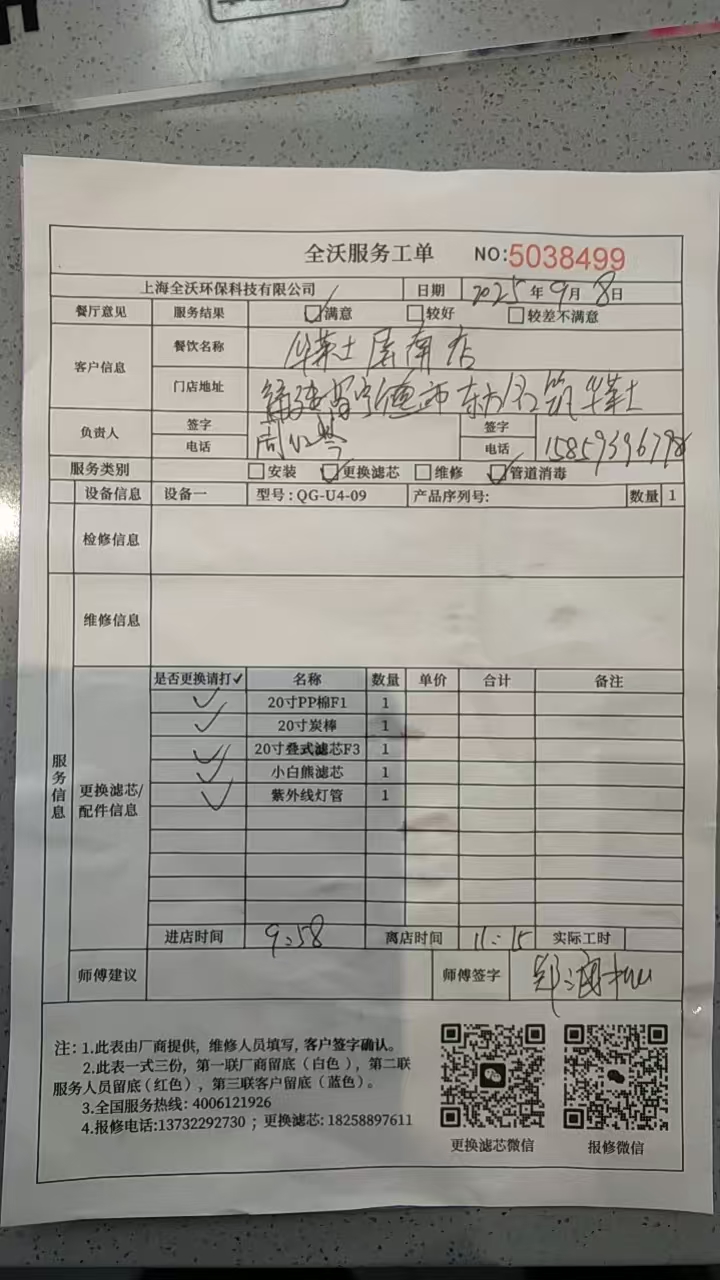 全沃服务工单 NO:5038499
上海全沃环保科技有限公司 日期 2025年9月8日
餐厅意见 服务结果 ☑满意 □较好 □较差不满意
客户信息 餐饮名称 华莱士屏南店
门店地址 福建省宁德市东方名筑华莱士
负责人 签字 周 签字
电话 电话
服务类别 □安装 ☑更换滤芯 □维修 ☑管道消毒
设备信息 设备一 型号:QG-U4-09 产品序列号: 数量 1
检修信息
维修信息
服务信息
更换滤芯/配件信息
是否更换请打✓ 名称 数量 单价 合计 备注
✓ 20寸PP棉F1 1
✓ 20寸炭棒 1
✓ 20寸叠式滤芯F3 1
✓ 小白熊滤芯 1
✓ 紫外线灯管 1
进店时间 9:58 离店时间 11:15 实际工时
师傅建议 师傅签字 郑
注：1.此表由厂商提供，维修人员填写，客户签字确认。
2.此表一式三份，第一联厂商留底（白色），第二联
服务人员留底（红色），第三联客户留底（蓝色）。
3.全国服务热线: 4006121926
4.报修电话:13732292730 ；更换滤芯: 18258897611
更换滤芯微信 报修微信